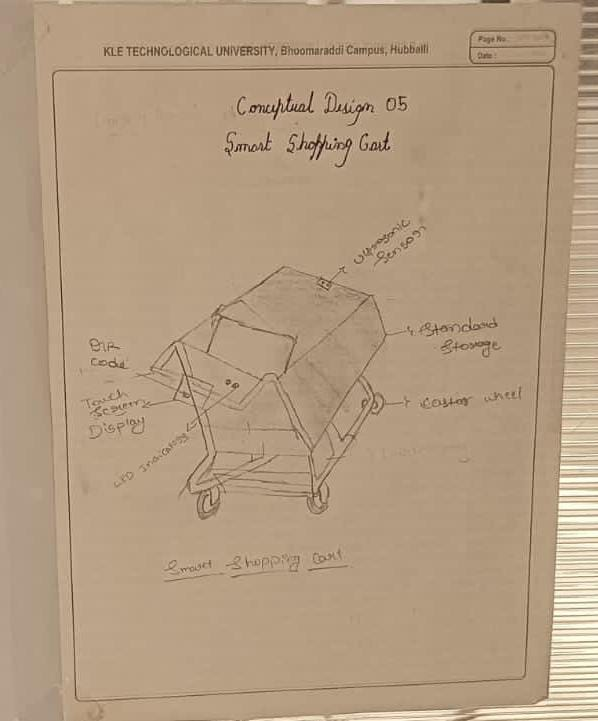 KLE TECHNOLOGICAL UNIVERSITY, Bhoomaraddi Campus, Hubballi
Page No.:
Date :
Conceptual Design 05
Smart Shopping Cart
Ultrasonic
Sensor
Standard
Storage
QR
Code
Touch
Screen
Display
Castor wheel
LED Indicators
Smart Shopping Cart